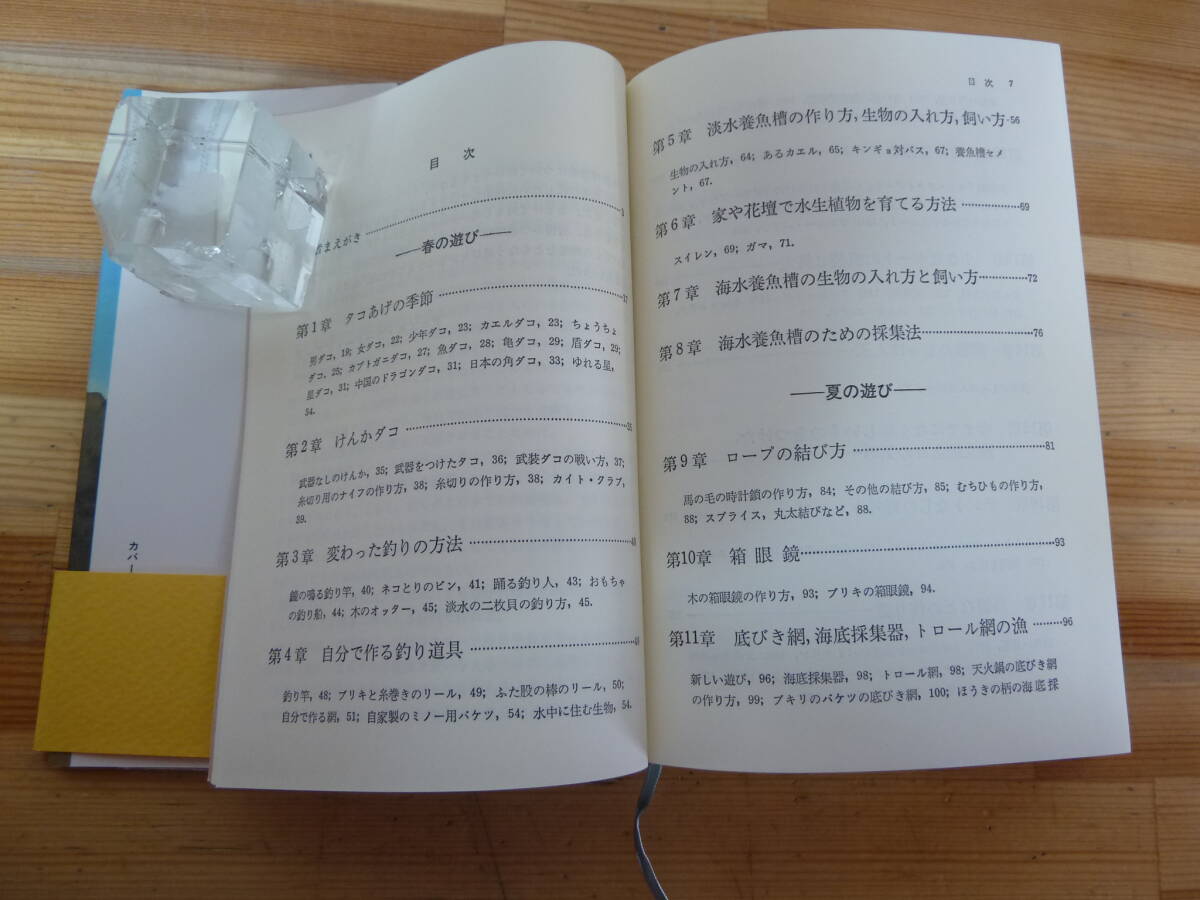 目 次
まえがき……3
——春の遊び——
第1章 タコあげの季節……17
男ダコ, 19; 女ダコ, 22; 少年ダコ, 23; カエルダコ, 23; ちょうちょ
ダコ, 25; カブトガニダコ, 27; 魚ダコ, 28; 亀ダコ, 29; 盾ダコ, 29;
星ダコ, 31; 中国のドラゴンダコ, 31; 日本の角ダコ, 33; ゆれる星,
34.
第2章 けんかダコ……35
武器なしのけんか, 35; 武器をつけたタコ, 36; 武装ダコの戦い方, 37;
糸切り用のナイフの作り方, 38; 糸切りの作り方, 38; カイト・クラブ,
39.
第3章 変わった釣りの方法……40
鐘の鳴る釣り竿, 40; ネコとりのビン, 41; 踊る釣り人, 43; おもちゃ
の釣り船, 44; 木のオッター, 45; 淡水の二枚貝の釣り方, 45.
第4章 自分で作る釣り道具……48
釣り竿, 48; ブリキと糸巻きのリール, 49; ふた股の棒のリール, 50;
自分で作る網, 51; 自家製のミノー用バケツ, 54; 水中に住む生物, 54.
カバー
目 次 7
第5章 淡水養魚槽の作り方, 生物の入れ方, 飼い方·56
生物の入れ方, 64; あるカエル, 65; キンギョ対バス, 67; 養魚槽セメ
ント, 67.
第6章 家や花壇で水生植物を育てる方法……69
スイレン, 69; ガマ, 71.
第7章 海水養魚槽の生物の入れ方と飼い方……72
第8章 海水養魚槽のための採集法……76
——夏の遊び——
第9章 ロープの結び方……81
馬の毛の時計鎖の作り方, 84; その他の結び方, 85; むちひもの作り方,
88; スプライス, 丸太結びなど, 88.
第10章 箱 眼 鏡……93
木の箱眼鏡の作り方, 93; ブリキの箱眼鏡, 94.
第11章 底びき網, 海底採集器, トロール網の漁……96
新しい遊び, 96; 海底採集器, 98; トロール網, 98; 天火鍋の底びき網
の作り方, 99; ブキリのバケツの底びき網, 100; ほうきの柄の海底採